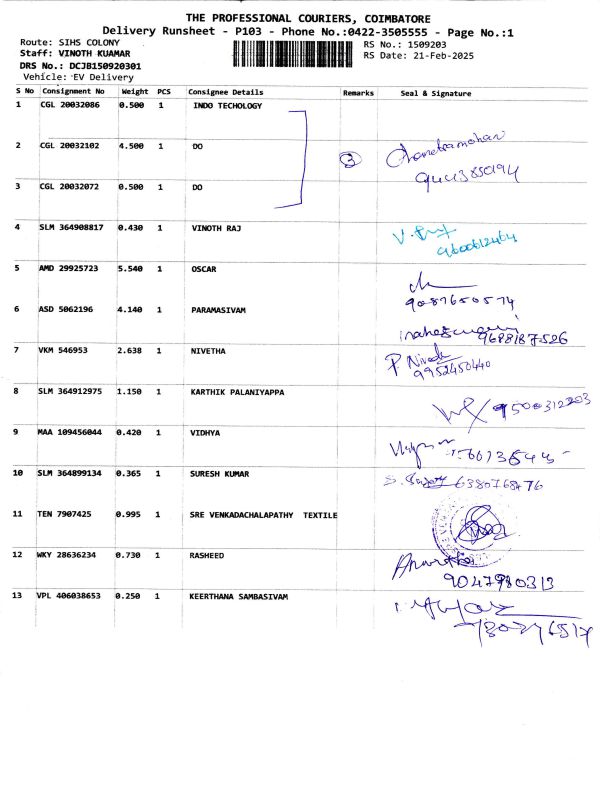 THE PROFESSIONAL COURIERS, COIMBATORE
Delivery Runsheet - P103 - Phone No.:0422-3505555 - Page No.:1
Route: SIHS COLONY RS No.: 1509203
Staff: VINOTH KUAMAR RS Date: 21-Feb-2025
DRS No.: DCJB150920301
Vehicle: EV Delivery
S No Consignment No Weight PCS Consignee Details Remarks Seal & Signature
1 CGL 20032086 0.500 1 INDO TECHOLOGY
2 CGL 20032102 4.500 1 DO 3 Chandramohan
3 CGL 20032072 0.500 1 DO
4 SLM 364908817 0.430 1 VINOTH RAJ
9600612464
5 AMD 29925723 5.540 1 OSCAR
9087650574
6 ASD 5062196 4.140 1 PARAMASIVAM
9688187526
7 VKM 546953 2.638 1 NIVETHA P Nivetha
9952450440
8 SLM 364912975 1.150 1 KARTHIK PALANIYAPPA 9500312203
9 MAA 109456044 0.420 1 VIDHYA
10 SLM 364899134 0.365 1 SURESH KUMAR 6380768476
11 TEN 7907425 0.995 1 SRE VENKADACHALAPATHY TEXTILE
12 WKY 28636234 0.730 1 RASHEED
9047980313
13 VPL 406038653 0.250 1 KEERTHANA SAMBASIVAM